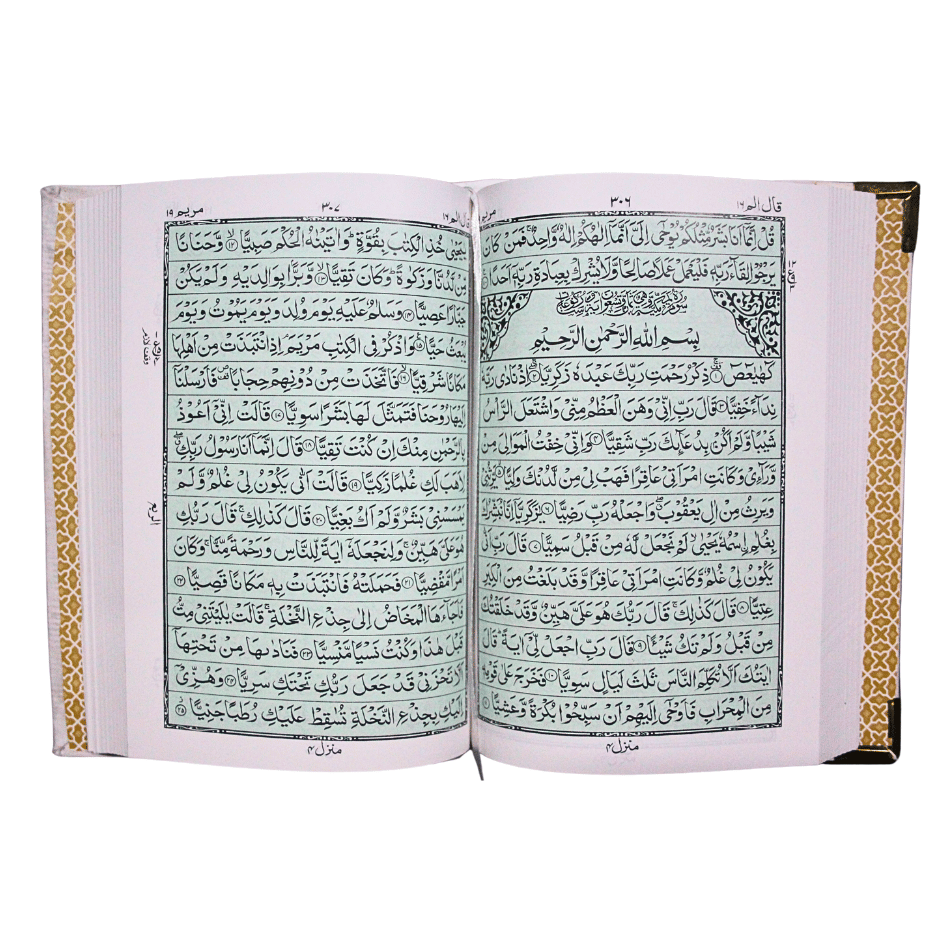 قال الم ١٦
٣٠٦
مريم ١٩
قُلْ اِنَّمَاۤ اَنَا بَشَرٌ مِّثْلُكُمْ يُوْحٰۤى اِلَيَّ اَنَّمَاۤ اِلٰهُكُمْ اِلٰهٌ وَّاحِدٌ ۚ فَمَنْ كَانَ
يَرْجُوْا لِقَآءَ رَبِّهٖ فَلْيَعْمَلْ عَمَلًا صَالِحًا وَّلَا يُشْرِكْ بِعِبَادَةِ رَبِّهٖۤ اَحَدًا
بِسْمِ اللّٰهِ الرَّحْمٰنِ الرَّحِيْمِ
كٓهٰيٰعٓصٓ ۚ﴿١﴾ ذِكْرُ رَحْمَتِ رَبِّكَ عَبْدَهٗ زَكَرِيَّا ۖ﴿٢﴾ اِذْ نَادٰى رَبَّهٗ
نِدَآءً خَفِيًّا ﴿٣﴾ قَالَ رَبِّ اِنِّيْ وَهَنَ الْعَظْمُ مِنِّيْ وَاشْتَعَلَ الرَّاْسُ
شَيْبًا وَّلَمْ اَكُنْۢ بِدُعَآئِكَ رَبِّ شَقِيًّا ﴿٤﴾ وَاِنِّيْ خِفْتُ الْمَوَالِيَ مِنْ
وَّرَآءِيْ وَكَانَتِ امْرَاَتِيْ عَاقِرًا فَهَبْ لِيْ مِنْ لَّدُنْكَ وَلِيًّا ﴿٥﴾ يَّرِثُنِيْ
وَيَرِثُ مِنْ اٰلِ يَعْقُوْبَ ۖ وَاجْعَلْهُ رَبِّ رَضِيًّا ﴿٦﴾ يٰزَكَرِيَّاۤ اِنَّا نُبَشِّرُكَ
بِغُلٰمِ ۨاسْمُهٗ يَحْيٰى ۙ لَمْ نَجْعَلْ لَّهٗ مِنْ قَبْلُ سَمِيًّا ﴿٧﴾ قَالَ رَبِّ اَنّٰى
يَكُوْنُ لِيْ غُلٰمٌ وَّكَانَتِ امْرَاَتِيْ عَاقِرًا وَّقَدْ بَلَغْتُ مِنَ الْكِبَرِ
عِتِيًّا ﴿٨﴾ قَالَ كَذٰلِكَ ۚ قَالَ رَبُّكَ هُوَ عَلَيَّ هَيِّنٌ وَّقَدْ خَلَقْتُكَ
مِنْ قَبْلُ وَلَمْ تَكُ شَيْـًٔا ﴿٩﴾ قَالَ رَبِّ اجْعَلْ لِّيْۤ اٰيَةً ؕ قَالَ
اٰيَتُكَ اَلَّا تُكَلِّمَ النَّاسَ ثَلٰثَ لَيَالٍ سَوِيًّا ﴿١٠﴾ فَخَرَجَ عَلٰى قَوْمِهٖ
مِنَ الْمِحْرَابِ فَاَوْحٰۤى اِلَيْهِمْ اَنْ سَبِّحُوْا بُكْرَةً وَّعَشِيًّا
منزل ٤
قال الم ١٦
٣٠٧
مريم ١٩
يٰيَحْيٰى خُذِ الْكِتٰبَ بِقُوَّةٍ ؕ وَاٰتَيْنٰهُ الْحُكْمَ صَبِيًّا ۙ﴿١٢﴾ وَّحَنَانًا
مِّنْ لَّدُنَّا وَزَكٰوةً ؕ وَكَانَ تَقِيًّا ۙ﴿١٣﴾ وَّبَرًّۢا بِوَالِدَيْهِ وَلَمْ يَكُنْ
جَبَّارًا عَصِيًّا ﴿١٤﴾ وَسَلٰمٌ عَلَيْهِ يَوْمَ وُلِدَ وَيَوْمَ يَمُوْتُ وَيَوْمَ
يُبْعَثُ حَيًّا ﴿١٥﴾ وَاذْكُرْ فِي الْكِتٰبِ مَرْيَمَ ۘ اِذِ انْتَبَذَتْ مِنْ اَهْلِهَا
مَكَانًا شَرْقِيًّا ۙ﴿١٦﴾ فَاتَّخَذَتْ مِنْ دُوْنِهِمْ حِجَابًا ۪ فَاَرْسَلْنَاۤ
اِلَيْهَا رُوْحَنَا فَتَمَثَّلَ لَهَا بَشَرًا سَوِيًّا ﴿١٧﴾ قَالَتْ اِنِّيْۤ اَعُوْذُ
بِالرَّحْمٰنِ مِنْكَ اِنْ كُنْتَ تَقِيًّا ﴿١٨﴾ قَالَ اِنَّمَاۤ اَنَا رَسُوْلُ رَبِّكِ ۖ
لِاَهَبَ لَكِ غُلٰمًا زَكِيًّا ﴿١٩﴾ قَالَتْ اَنّٰى يَكُوْنُ لِيْ غُلٰمٌ وَّلَمْ
يَمْسَسْنِيْ بَشَرٌ وَّلَمْ اَكُ بَغِيًّا ﴿٢٠﴾ قَالَ كَذٰلِكِ ۚ قَالَ رَبُّكِ
هُوَ عَلَيَّ هَيِّنٌ ۚ وَلِنَجْعَلَهٗۤ اٰيَةً لِّلنَّاسِ وَرَحْمَةً مِّنَّا ۚ وَكَانَ
اَمْرًا مَّقْضِيًّا ﴿٢١﴾ فَحَمَلَتْهُ فَانْتَبَذَتْ بِهٖ مَكَانًا قَصِيًّا ﴿٢٢﴾
فَاَجَآءَهَا الْمَخَاضُ اِلٰى جِذْعِ النَّخْلَةِ ۚ قَالَتْ يٰلَيْتَنِيْ مِتُّ
قَبْلَ هٰذَا وَكُنْتُ نَسْيًا مَّنْسِيًّا ﴿٢٣﴾ فَنَادٰىهَا مِنْ تَحْتِهَاۤ
اَلَّا تَحْزَنِيْ قَدْ جَعَلَ رَبُّكِ تَحْتَكِ سَرِيًّا ﴿٢٤﴾ وَهُزِّيْۤ
اِلَيْكِ بِجِذْعِ النَّخْلَةِ تُسٰقِطْ عَلَيْكِ رُطَبًا جَنِيًّا ﴿٢٥﴾
وقف لازم
الربع
منزل ٤